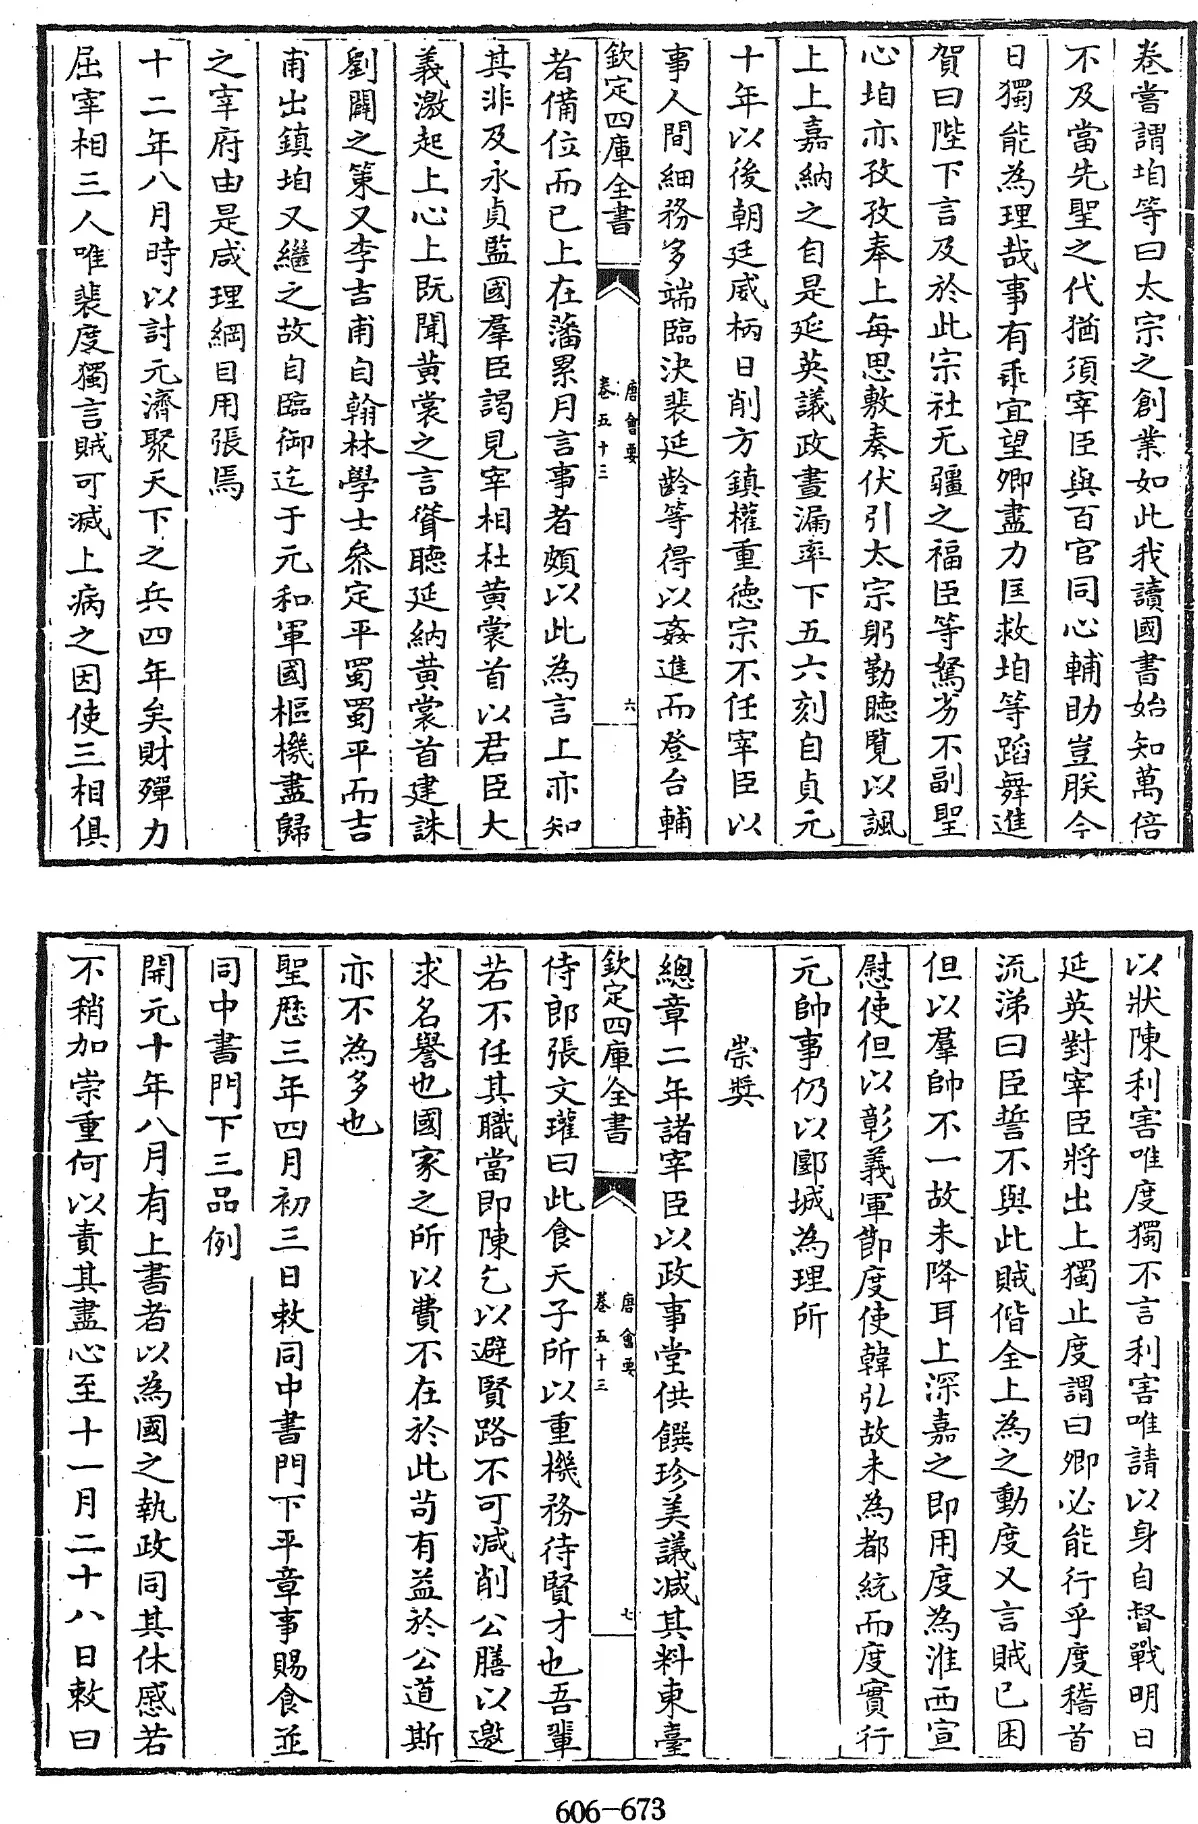 卷嘗謂垍等曰太宗之創業如此我讀國書始知萬倍
不及當先聖之代猶須宰臣與百官同心輔助豈朕今
日獨能為理哉事有乖宜望卿盡力匡救垍等蹈舞進
賀曰陛下言及於此宗社无疆之福臣等駑劣不副聖
心垍亦孜孜奉上每思敷奏伏引太宗躬勤聴覧以諷
上上嘉納之自是延英議政晝漏率下五六刻自貞元
十年以後朝廷威柄日削方鎮權重徳宗不任宰臣以
事人間細務多端臨決裴延齡等得以姦進而登台輔
欽定四庫全書
唐會要
卷五十三
六
者備位而已上在藩累月言事者頗以此為言上亦知
其非及永貞監國羣臣謁見宰相杜黄裳首以君臣大
義激起上心上既聞黄裳之言聳聽延納黄裳首建誅
劉闢之策又李吉甫自翰林學士叅定平蜀蜀平而吉
甫出鎮垍又繼之故自臨御迄于元和軍國樞機盡歸
之宰府由是咸理綱目用張焉
十二年八月時以討元濟聚天下之兵四年矣財殫力
屈宰相三人唯裴度獨言賊可滅上病之因使三相俱
以狀陳利害唯度獨不言利害唯請以身自督戰明日
延英對宰臣將出上獨止度謂曰卿必能行乎度稽首
流涕曰臣誓不與此賊偕全上為之動度又言賊已困
但以羣帥不一故未降耳上深嘉之即用度為淮西宣
慰使但以彰義軍節度使韓弘故未為都統而度實行
元帥事仍以郾城為理所
崇奬
總章二年諸宰臣以政事堂供饌珍美議减其料東臺
欽定四庫全書
唐會要
卷五十三
七
侍郎張文瓘曰此食天子所以重機務待賢才也吾輩
若不任其職當即陳乞以避賢路不可减削公膳以邀
求名譽也國家之所以費不在於此苟有益於公道斯
亦不為多也
聖歴三年四月初三日敕同中書門下平章事賜食並
同中書門下三品例
開元十年八月有上書者以為國之執政同其休慼若
不稍加崇重何以責其盡心至十一月二十八日敕曰
606-673